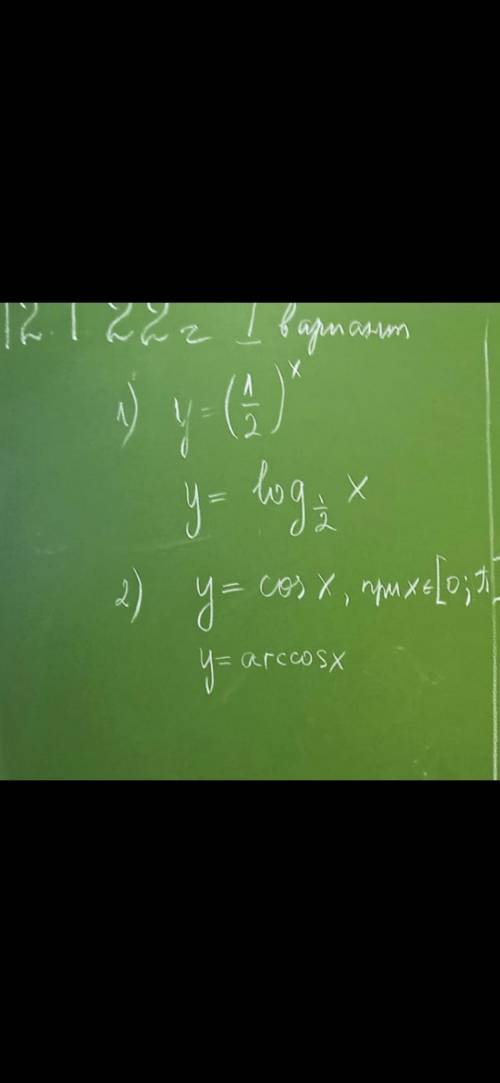 12.1.22г I вариант
1) y = (1/2)^x
y = log_{1/2} x
2) y = cos x, при x ∈ [0; π]
y = arccosx